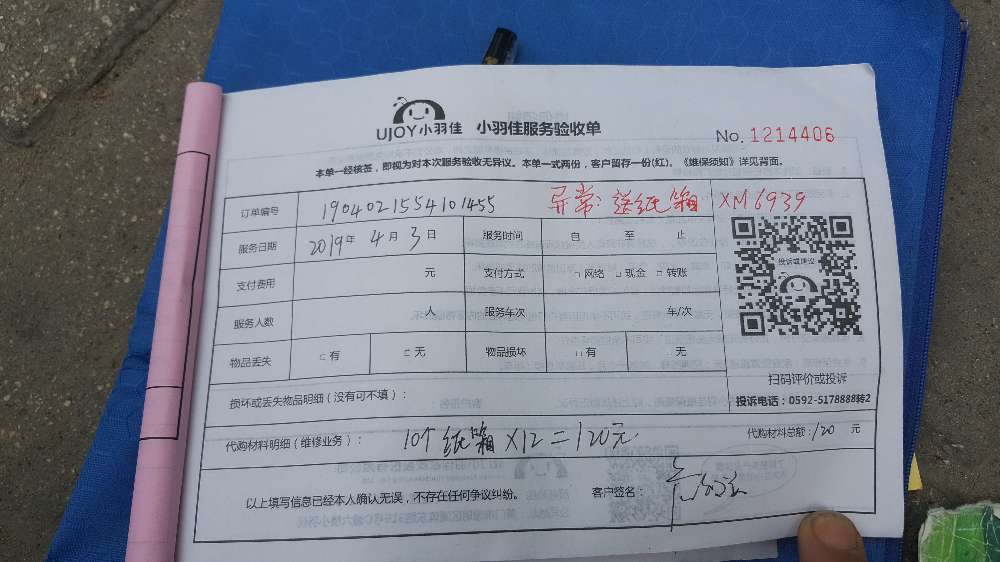 UJOY小羽佳 小羽佳服务验收单
No. 1214406
本单一经核签,即视为对本次服务验收无异议。本单一式两份,客户留存一份(红)。《维保须知》详见背面。
订单编号 1904021554101455 异常:送纸箱 XM6939
服务日期 2019年 4月 3日 服务时间 自 至 止
投诉或建议
支付费用 元 支付方式 □ 网络 □ 现金 □ 转账
服务人数 人 服务车次 车/次
物品丢失 □ 有 □ 无 物品损坏 □ 有 无
扫码评价或投诉
损坏或丢失物品明细(没有可不填):
投诉电话:0592-5178888转2
代购材料明细(维修业务): 10个纸箱×12=120元 代购材料总额:120 元
以上填写信息已经本人确认无误,不存在任何争议纠纷。 客户签名: